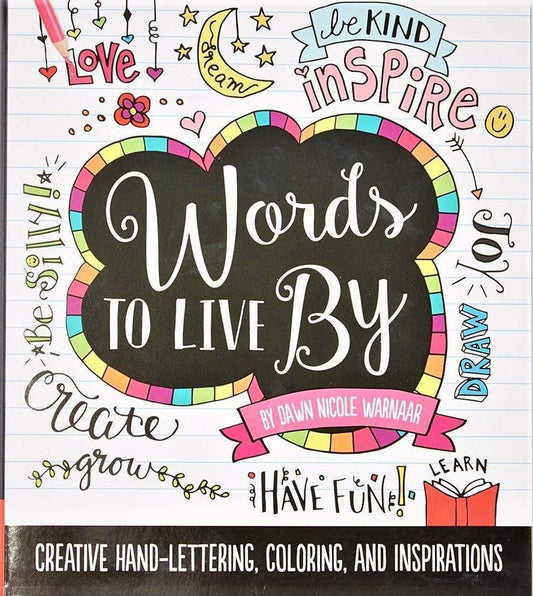 LOVE
dream
be KIND
inSPiRE
Be Silly!
Words
TO LIVE BY
JOY
DRAW
BY DAWN NICOLE WARNAAR
Create
grow
HAVE FUN!
LEARN
CREATIVE HAND-LETTERING, COLORING, AND INSPIRATIONS